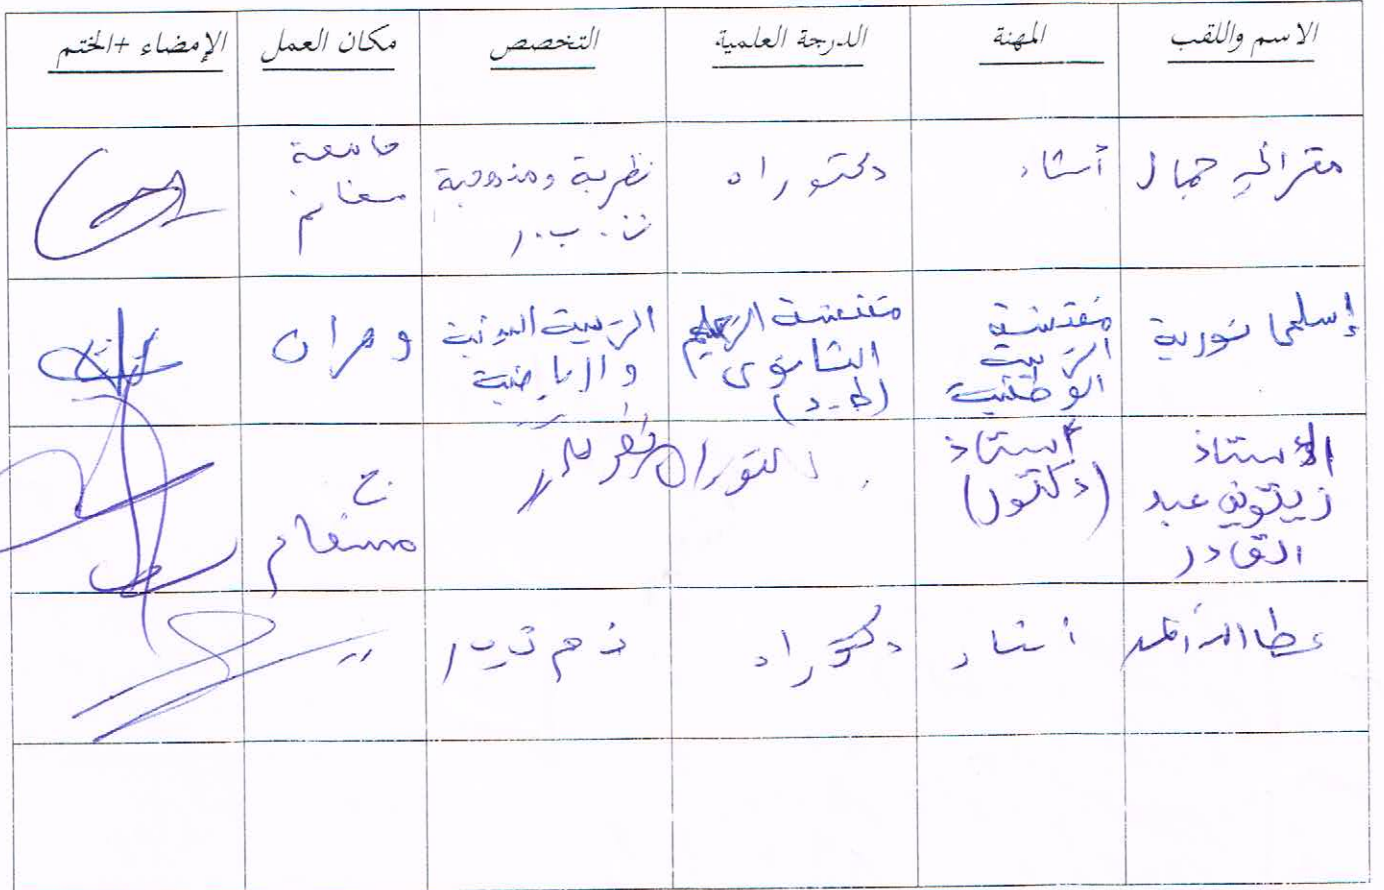 الاسم واللقب	المهنة	الدرجة العلمية	التخصص	مكان العمل	الإمضاء +الختم
مقراني جمال
أستاذ
دكتوراه
نظرية ومنهجية
ت. ب. ر
جامعة
مستغانم
إسلمى نورية
مفتشة
التربية
الوطنية
مفتشة التعليم
الثانوي
التربية البدنية
والرياضية
وهران
الأستاذ
زيتوني عبد
القادر
أستاذ
(دكتور)
دكتوراه
ج
مستغانم
عطا الله أحمد
أستاذ
دكتوراه
"